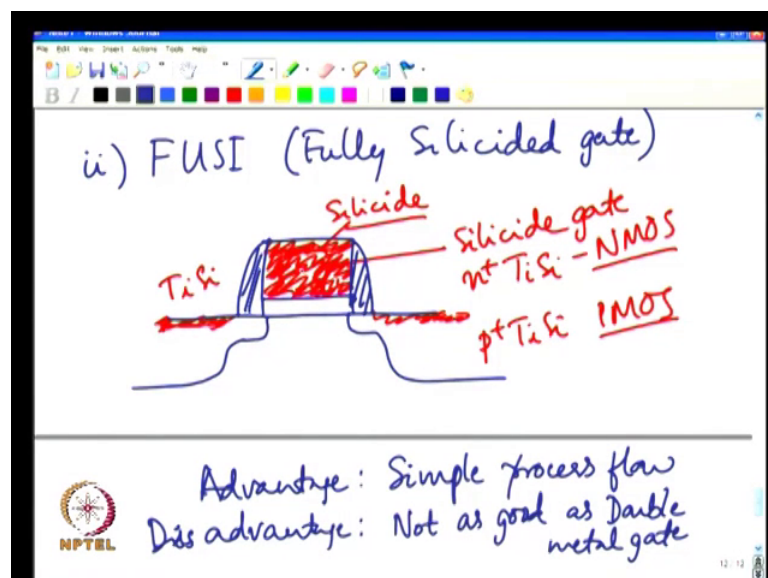 File Edit View Insert Actions Tools Help
B I
ii) FUSI (Fully Silicided gate)
Silicide
Silicide gate
TiSi
n+ TiSi - NMOS
p+ TiSi PMOS
Advantage: Simple process flow
Disadvantage: Not as good as Double
metal gate
NPTEL
12 / 12